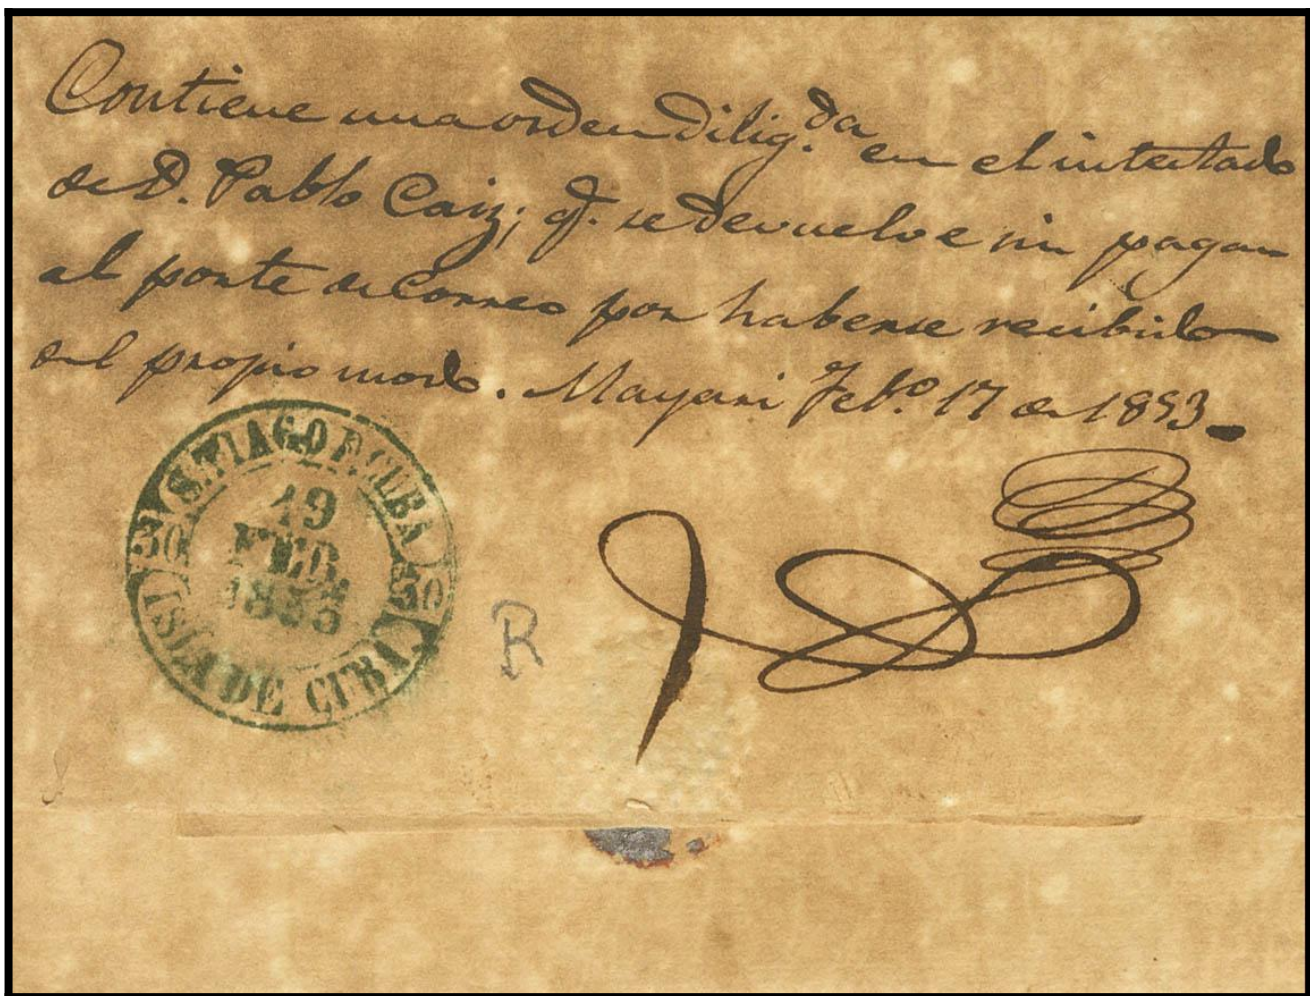 Contiene una orden dilig.da en el intestado
de D. Pablo Caiz; q. se devuelve sin pagar
el porte de Correo por haberse recibido
del propio modo. Mayari Feb.o 17 de 1853.
S.TIAGO DE CUBA
19
FEB.
1853
30
30
ISLA DE CUBA.
R